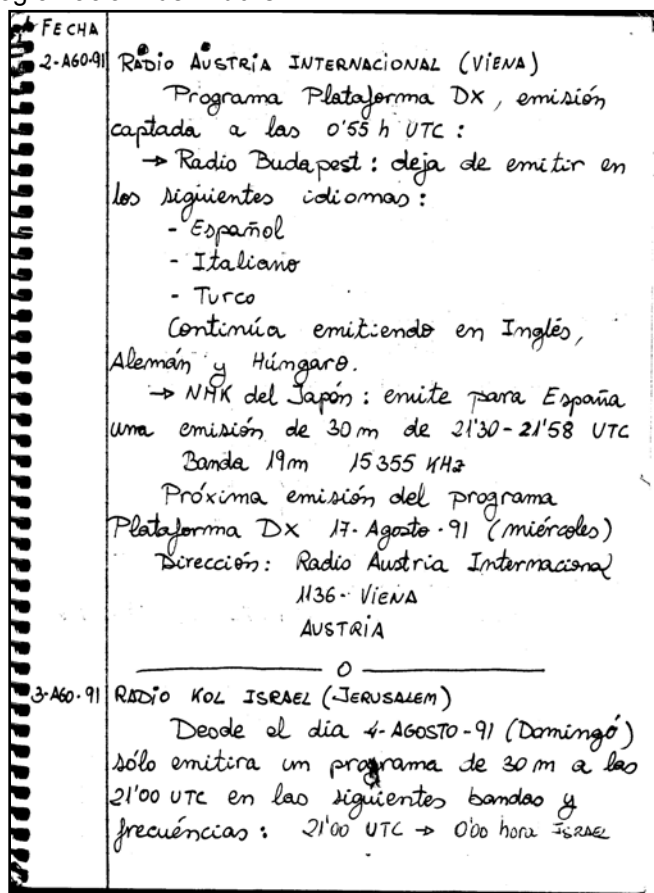 FECHA
2-AGO-91 RADIO AUSTRIA INTERNACIONAL (VIENA)
Programa Plataforma DX, emisión
captada a las 0'55 h UTC :
→ Radio Budapest : deja de emitir en
los siguientes idiomas :
- Español
- Italiano
- Turco
Continúa emitiendo en Inglés,
Alemán y Húngaro.
→ NHK del Japón : emite para España
una emisión de 30 m de 21'30 - 21'58 UTC
Banda 19m 15355 KHz
Próxima emisión del programa
Plataforma DX 17-Agosto-91 (miércoles)
Dirección: Radio Austria Internacional
1136- VIENA
AUSTRIA
O
3-AGO-91 RADIO KOL ISRAEL (JERUSALEM)
Desde el día 4-AGOSTO-91 (Domingó)
sólo emitira un programa de 30 m a las
21'00 UTC en las siguientes bandas y
frecuéncias : 21'00 UTC → 0'00 hora ISRAEL